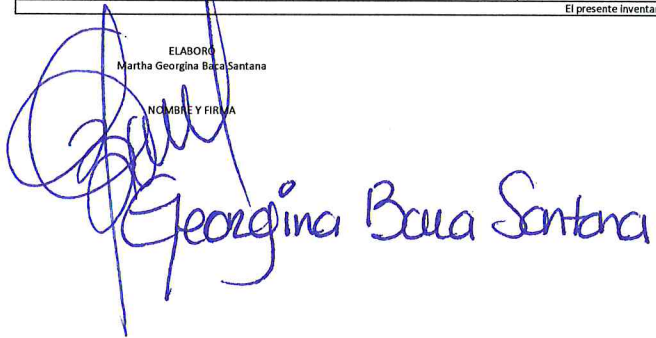 El presente inventar
ELABORÓ
Martha Georgina Baca Santana
NOMBRE Y FIRMA
Georgina Baca Santana